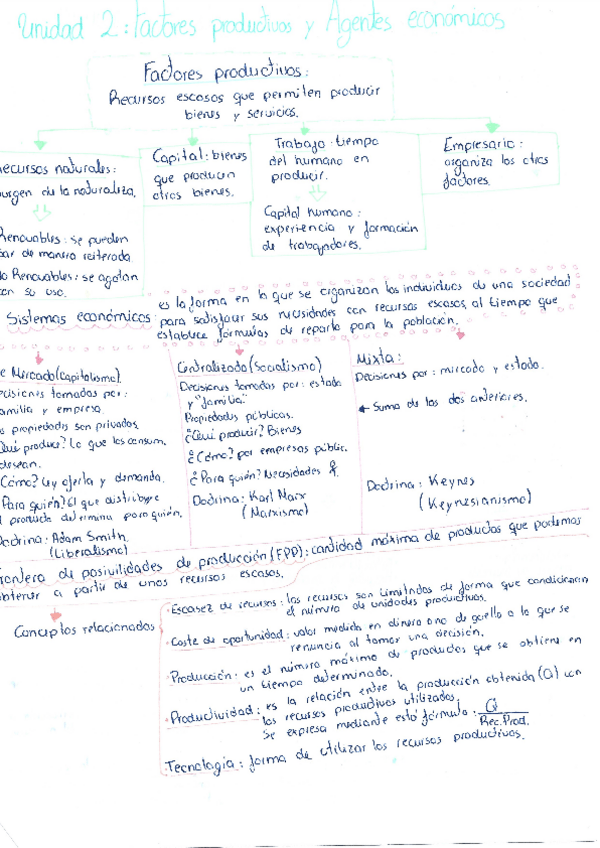 Unidad 2: Factores productivos y Agentes económicos
Factores productivos:
Recursos escasos que permiten producir
bienes y servicios.
ecursos naturales:
urgen de la naturaleza.
Renovables: se pueden
ar de manera reiterada
o Renovables: se agotan
on su uso.
Capital: bienes
que producen
otros bienes.
Trabajo: tiempo
del humano en
producir.
Capital humano:
experiencia y formación
de trabajadores.
Empresario:
organiza los otros
factores.
Sistemas económicos:
es la forma en la que se organizan los individuos de una sociedad
para satisfacer sus necesidades con recursos escasos, al tiempo que
establece fórmulas de reparto para la población.
e Mercado (capitalismo).
ecisiones tomadas por:
amilia y empresa
s propiedades son privadas
Qué produce? Lo que los consum.
desean.
Cómo? Ley oferta y demanda.
Para quién? El que distribuye
l producto determina para quién.
Doctrina: Adam Smith.
(Liberalismo)
Centralizada (Socialismo)
Decisiones tomadas por: estado
y "familia"
Propiedades públicas.
¿Qué producir? Bienes
¿Cómo? por empresas públic.
¿Para quién? Necesidades
Doctrina: Karl Marx
(Marxismo)
Mixta:
Decisiones por: mercado y estado.
Suma de las dos anteriores.
Doctrina: Keynes
(Keynesianismo)
rontera de posivilidades de producción (FPP): cantidad máxima de productos que podemos
obtener a partir de unos recursos escasos.
Conceptos relacionados
· Escasez de recursos: los recursos son limitados de forma que condicionan
el número de unidades productivas.
· Coste de oportunidad: valor medida en dinero o no de aquello a lo que se
renuncia al tomar una decisión.
· Producción: es el número máximo de productos que se obtiene en
un tiempo determinado.
· Productividad: es la relación entre la producción obtenida (Q) con
los recursos productivos utilizados.
Se expresa mediante está fórmula: Q
Rec. Prod.
Tecnología: forma de utilizar los recursos productivos.